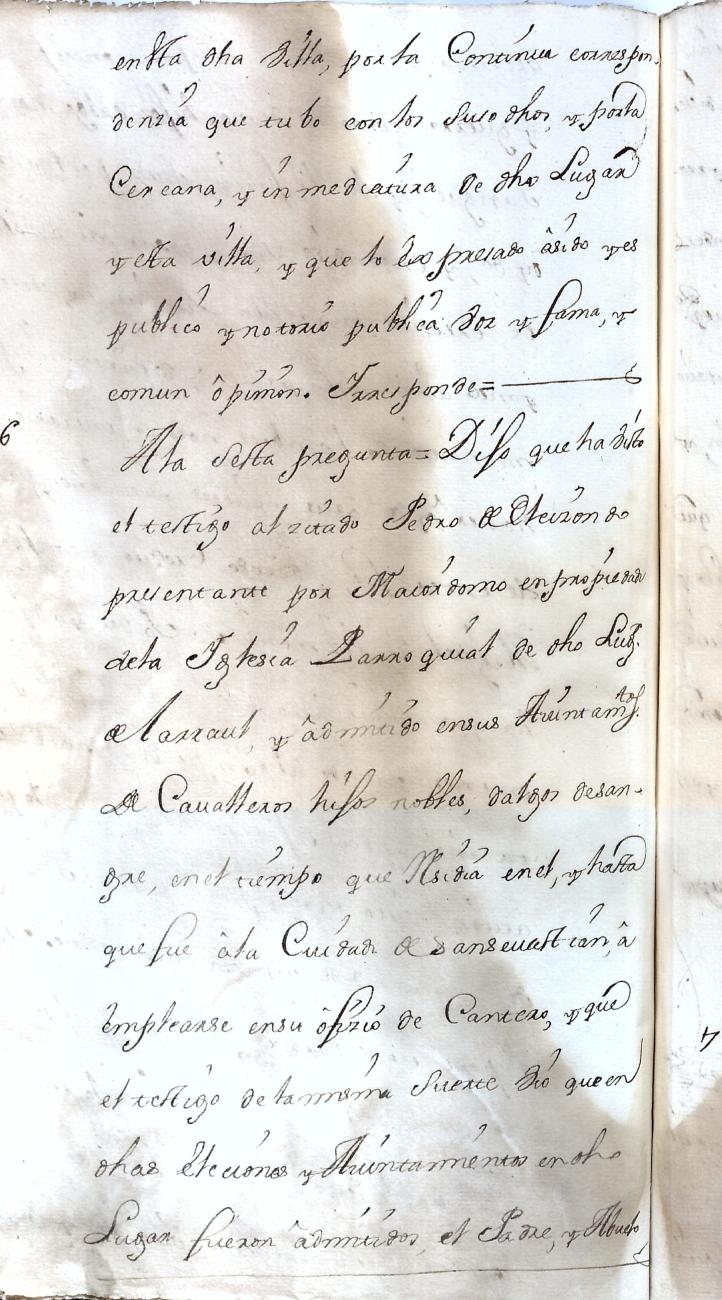 en Sta dha Villa, por la Continua correspon-
denzia que tubo con los Suso dhos, y por la
Cercana, y inmediatura de dho Lugar
y esta villa, y que lo Expresado â sido y es
publico y notorio publica Voz y fama, y
comun ôpinion. Y rresponde=
6
A la Sesta pregunta= Dijo que ha visto
el testigo al zitado Pedro de Eleizondo
presentante por Maiordomo en propiedad
de la Yglesia Parroquial de dho Lug.r
de Larraul, y âdmitido en sus Aiuntam.tos
de Cavalleros hijos nobles, dalgos de san-
gre, en el tiempo que Residia en el, y hasta
que fue â la Ciudad de san sevastian, â
Emplearse en su ôfizio de Cantero, y que
el testigo de la misma Suerte Vio que en
dhas Elecciones y Aiuntamientos en dho
Lugar fueron âdmitidos, el Padre, y Abuelo
7